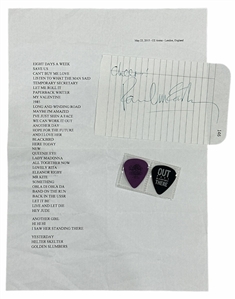 May 23, 2015 - O2 Arena - London, England
EIGHT DAYS A WEEK
SAVE US
CAN'T BUY ME LOVE
LISTEN TO WHAT THE MAN SAID
TEMPORARY SECRETARY
LET ME ROLL IT
PAPERBACK WRITER
MY VALENTINE
1985
LONG AND WINDING ROAD
MAYBE I'M AMAZED
I'VE JUST SEEN A FACE
WE CAN WORK IT OUT
ANOTHER DAY
HOPE FOR THE FUTURE
AND I LOVE HER
BLACKBIRD
HERE TODAY
NEW
QUEENIE EYE
LADY MADONNA
ALL TOGETHER NOW
LOVELY RITA
ELEANOR RIGBY
MR KITE
SOMETHING
OBLA DI OBLA DA
BAND ON THE RUN
BACK IN THE USSR
LET IT BE
LIVE AND LET DIE
HEY JUDE
ANOTHER GIRL
HI HI HI
I SAW HER STANDING THERE
YESTERDAY
HELTER SKELTER
GOLDEN SLUMBERS
Cheers
Paul McCartney
OUT
THERE